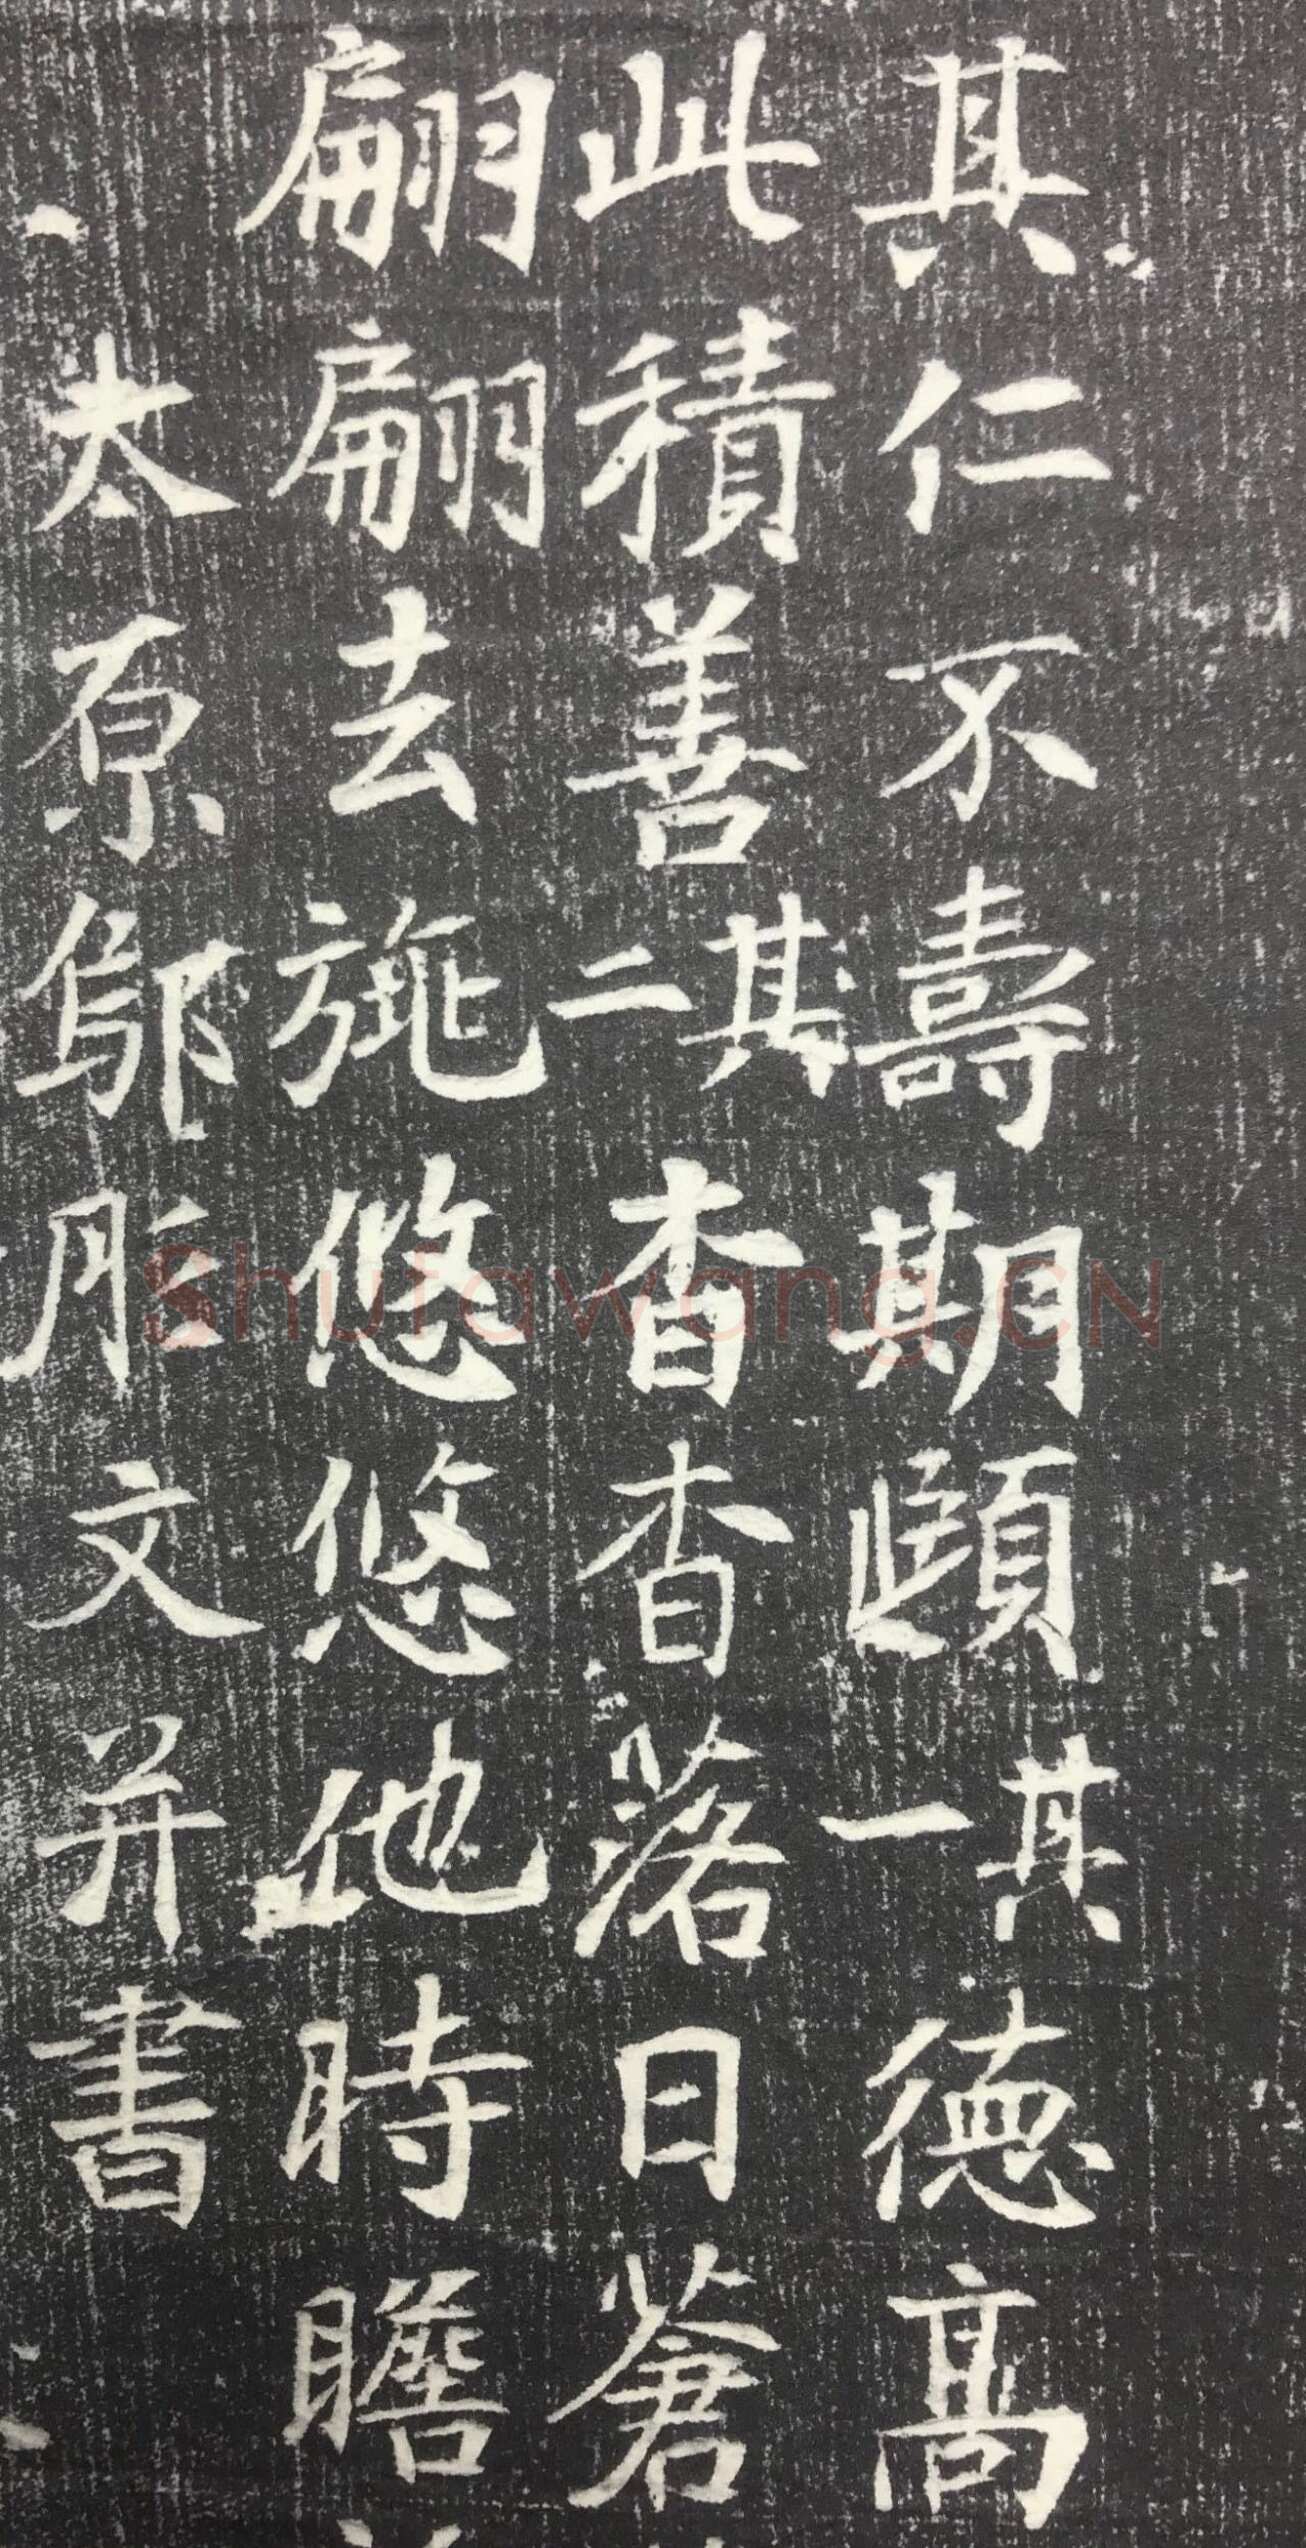 其仁不壽期頤其一德高
此積善其二杳杳落日蒼
翩翩去旐悠悠他時瞻
太原鄔彤文并書
Shufawang.CN